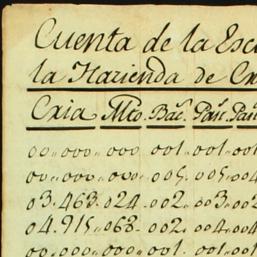 Cuenta de la Esc
la Hazienda de Cr
Cria Mto. Bac. Pañ. Pañ
00.,000., 000 001..001..001
00..000..000.. 005..005..00
03.463.024..002..003..002
04.915..063..002..004..004
00..000..000..001..001..00